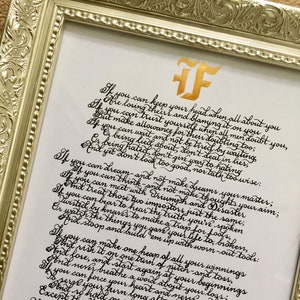 IF
If you can keep your head when all about you
Are losing theirs and blaming it on you
If you can trust yourself when all men doubt you,
But make allowance for their doubting too:
If you can wait and not be tired by waiting,
Or being lied about, don't deal in lies,
Or being hated don't give way to hating
And yet don't look too good, nor talk too wise:
If you can dream - and not make dreams your master;
If you can think - and not make thoughts your aim;
If you can meet with Triumph and Disaster
And treat those two impostors just the same
If you can bear to hear the truth you've spoken
Twisted by knaves to make a trap for fools,
Or watch the things you gave your life to, broken,
And stoop and build 'em up with worn-out tools:
If you can make one heap of all your winnings
And risk it on one turn of pitch-and-toss
And lose, and start again at your beginnings
And never breathe a word about your loss;
If you can force your heart and nerve